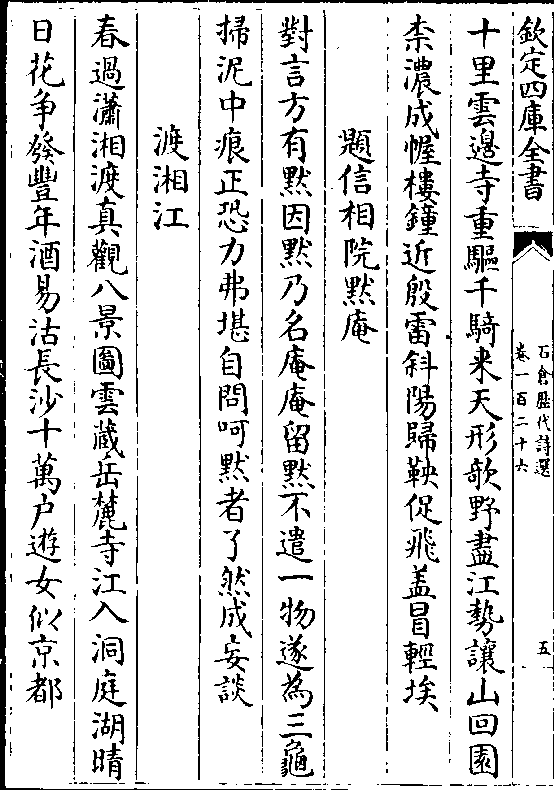 欽定四庫全書
石倉歷代詩選
卷一百二十六
五
十里雲邊寺重驅千騎来天形欹野盡江勢讓山回園
柰濃成幄樓鐘近殷雷斜陽歸鞅促飛盖冒輕埃
題信相院黙庵
對言方有黙因黙乃名庵庵留黙不遣一物遂為三龜
掃泥中痕正恐力弗堪自問呵黙者了然成妄談
渡湘江
春過瀟湘渡真觀八景圖雲藏岳麓寺江入洞庭湖晴
日花争發豐年酒易沽長沙十萬户遊女似京都